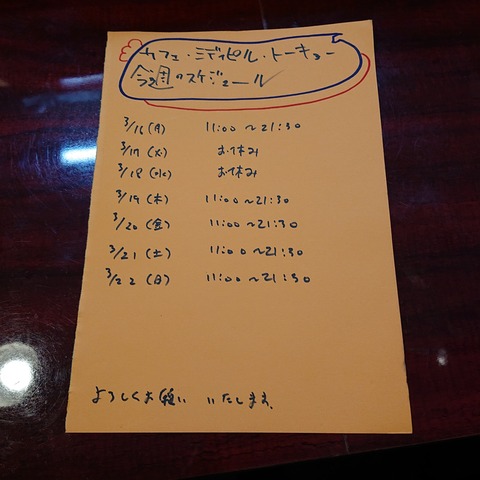 カフェ・ミディピル・トーキョー
今週のスケジュール
3/16(月) 11:00～21:30
3/17(火) お休み
3/18(水) お休み
3/19(木) 11:00～21:30
3/20(金) 11:00～21:30
3/21(土) 11:00～21:30
3/22(日) 11:00～21:30
よろしくお願い いたします。